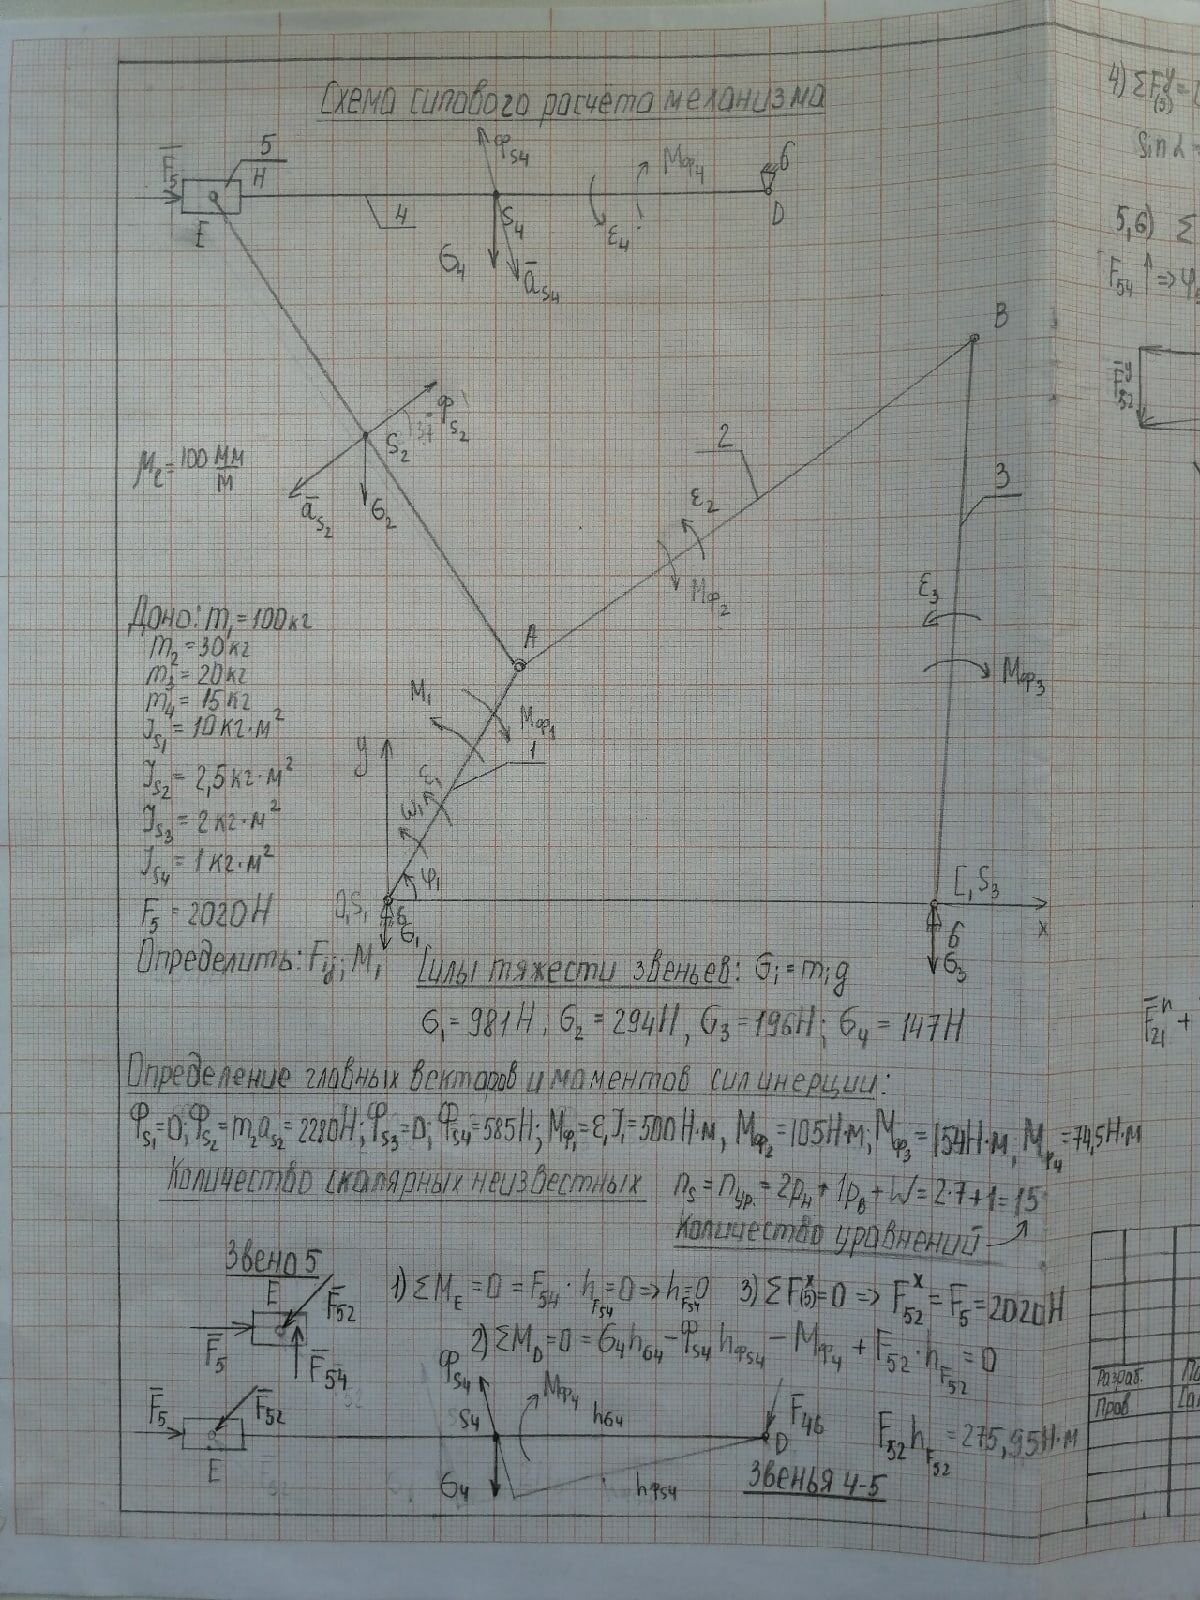 Схема силового расчёта механизма
4) ΣF(5)^y =
sin α
5
H
F̅5
E
4
Φs4
S4
G4
a̅s4
ε4
Mφ4
6
D
5,6) Σ
F̅54 ↑ =>
B
F̅52^y
Φ̅s2
37
S2
a̅s2
G2
μℓ = 100 мм/м
2
ε2
Mφ2
3
ε3
Mφ3
Дано: m1 = 100кг
m2 = 30кг
m3 = 20кг
m4 = 15кг
Js1 = 10кг·м²
Js2 = 2,5кг·м²
Js3 = 2кг·м²
Js4 = 1кг·м²
F5 = 2020Н
A
M1
Mφ1
1
y
ε1
ω1
φ1
O,S1
6
G1
C,S3
x
6
G3
Определить: Fij; M1
Силы тяжести звеньев: Gi = mig
G1 = 981Н, G2 = 294Н, G3 = 196Н; G4 = 147Н
F̅21^n +
Определение главных векторов и моментов сил инерции:
Φs1=0; Φs2=m2as2=2280Н; Φs3=0; Φs4=585Н; Mφ1=ε1J1=500Н·м, Mφ2=105Н·м; Mφ3=154Н·м; Mφ4=74,5Н·м
Количество скалярных неизвестных ns = nур. = 2pн + 1pв + W = 2·7+1=15
Количество уравнений
Звено 5
E
F̅52
F̅5
F̅54
1) ΣME = 0 = F54 · hF54 = 0 => hF54=0
3) ΣF(5)^x=0 => F52^x = F5 = 2020Н
2) ΣMD=0 = G4hG4 - Φs4hΦs4 - Mφ4 + F52·hF52 = 0
Φs4
Mφ4
hG4
S4
F̅5
F̅52
E
F̅46
D
G4
hφs4
F52hF52 = 275,95Н·м
Звенья 4-5
Разраб.
Пров